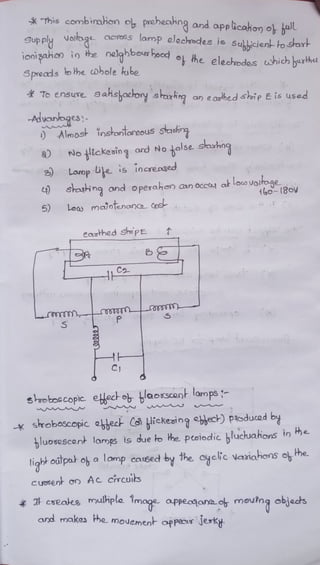 * This combination of preheating and application of full
supply voltage across lamp electrodes is sufficient to start
ionization in the neighbourhood of the electrodes which further
Spreads to the whole tube.
* To ensure satisfactory starting an earthed ship E is used
-Advantages:-
1) Almost instantaneous starting
2) No flickering and No false starting
3) Lamp life is increased
4) starting and operation can occur at low voltage
160-180V
5) Low maintenance cost
earthed ship E ↑
A B
C2
S P S
C1
stroboscopic effect of fluorescent lamps:-
* stroboscopic effect (or) flickering effect) produced by
fluorescent lamps is due to the periodic fluctuations in the
light output of a lamp caused by the cyclic variations of the
current on AC circuits
* It creates multiple image appearance of moving objects
and makes the movement appear jerky.